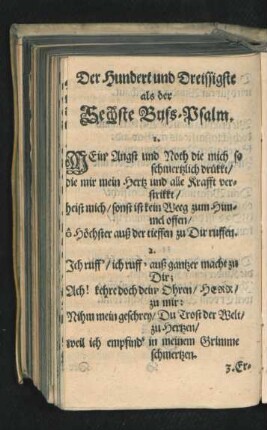 Der Hundert und Dreissigste
als der
Sechste Buss-Psalm.
1.
MEine Angst und Noth die mich so
schmertzlich drükkt/
die mir mein Hertz und alle Krafft ver-
strikkt/
heist mich/ sonst ist kein Weeg zum Him-
mel offen/
ô Höchster auß der tieffen zu Dir ruffen.
2.
Ich ruff'/ ich ruff'/ auß gantzer macht zu
Dir;
Ach! kehre doch dein' Ohren/ HERR/
zu mir:
Nihm mein geschrey/ Du Trost der Welt/
zu Hertzen/
weil ich empfind' in meinem Grimme
schmertzen.
3. Er-